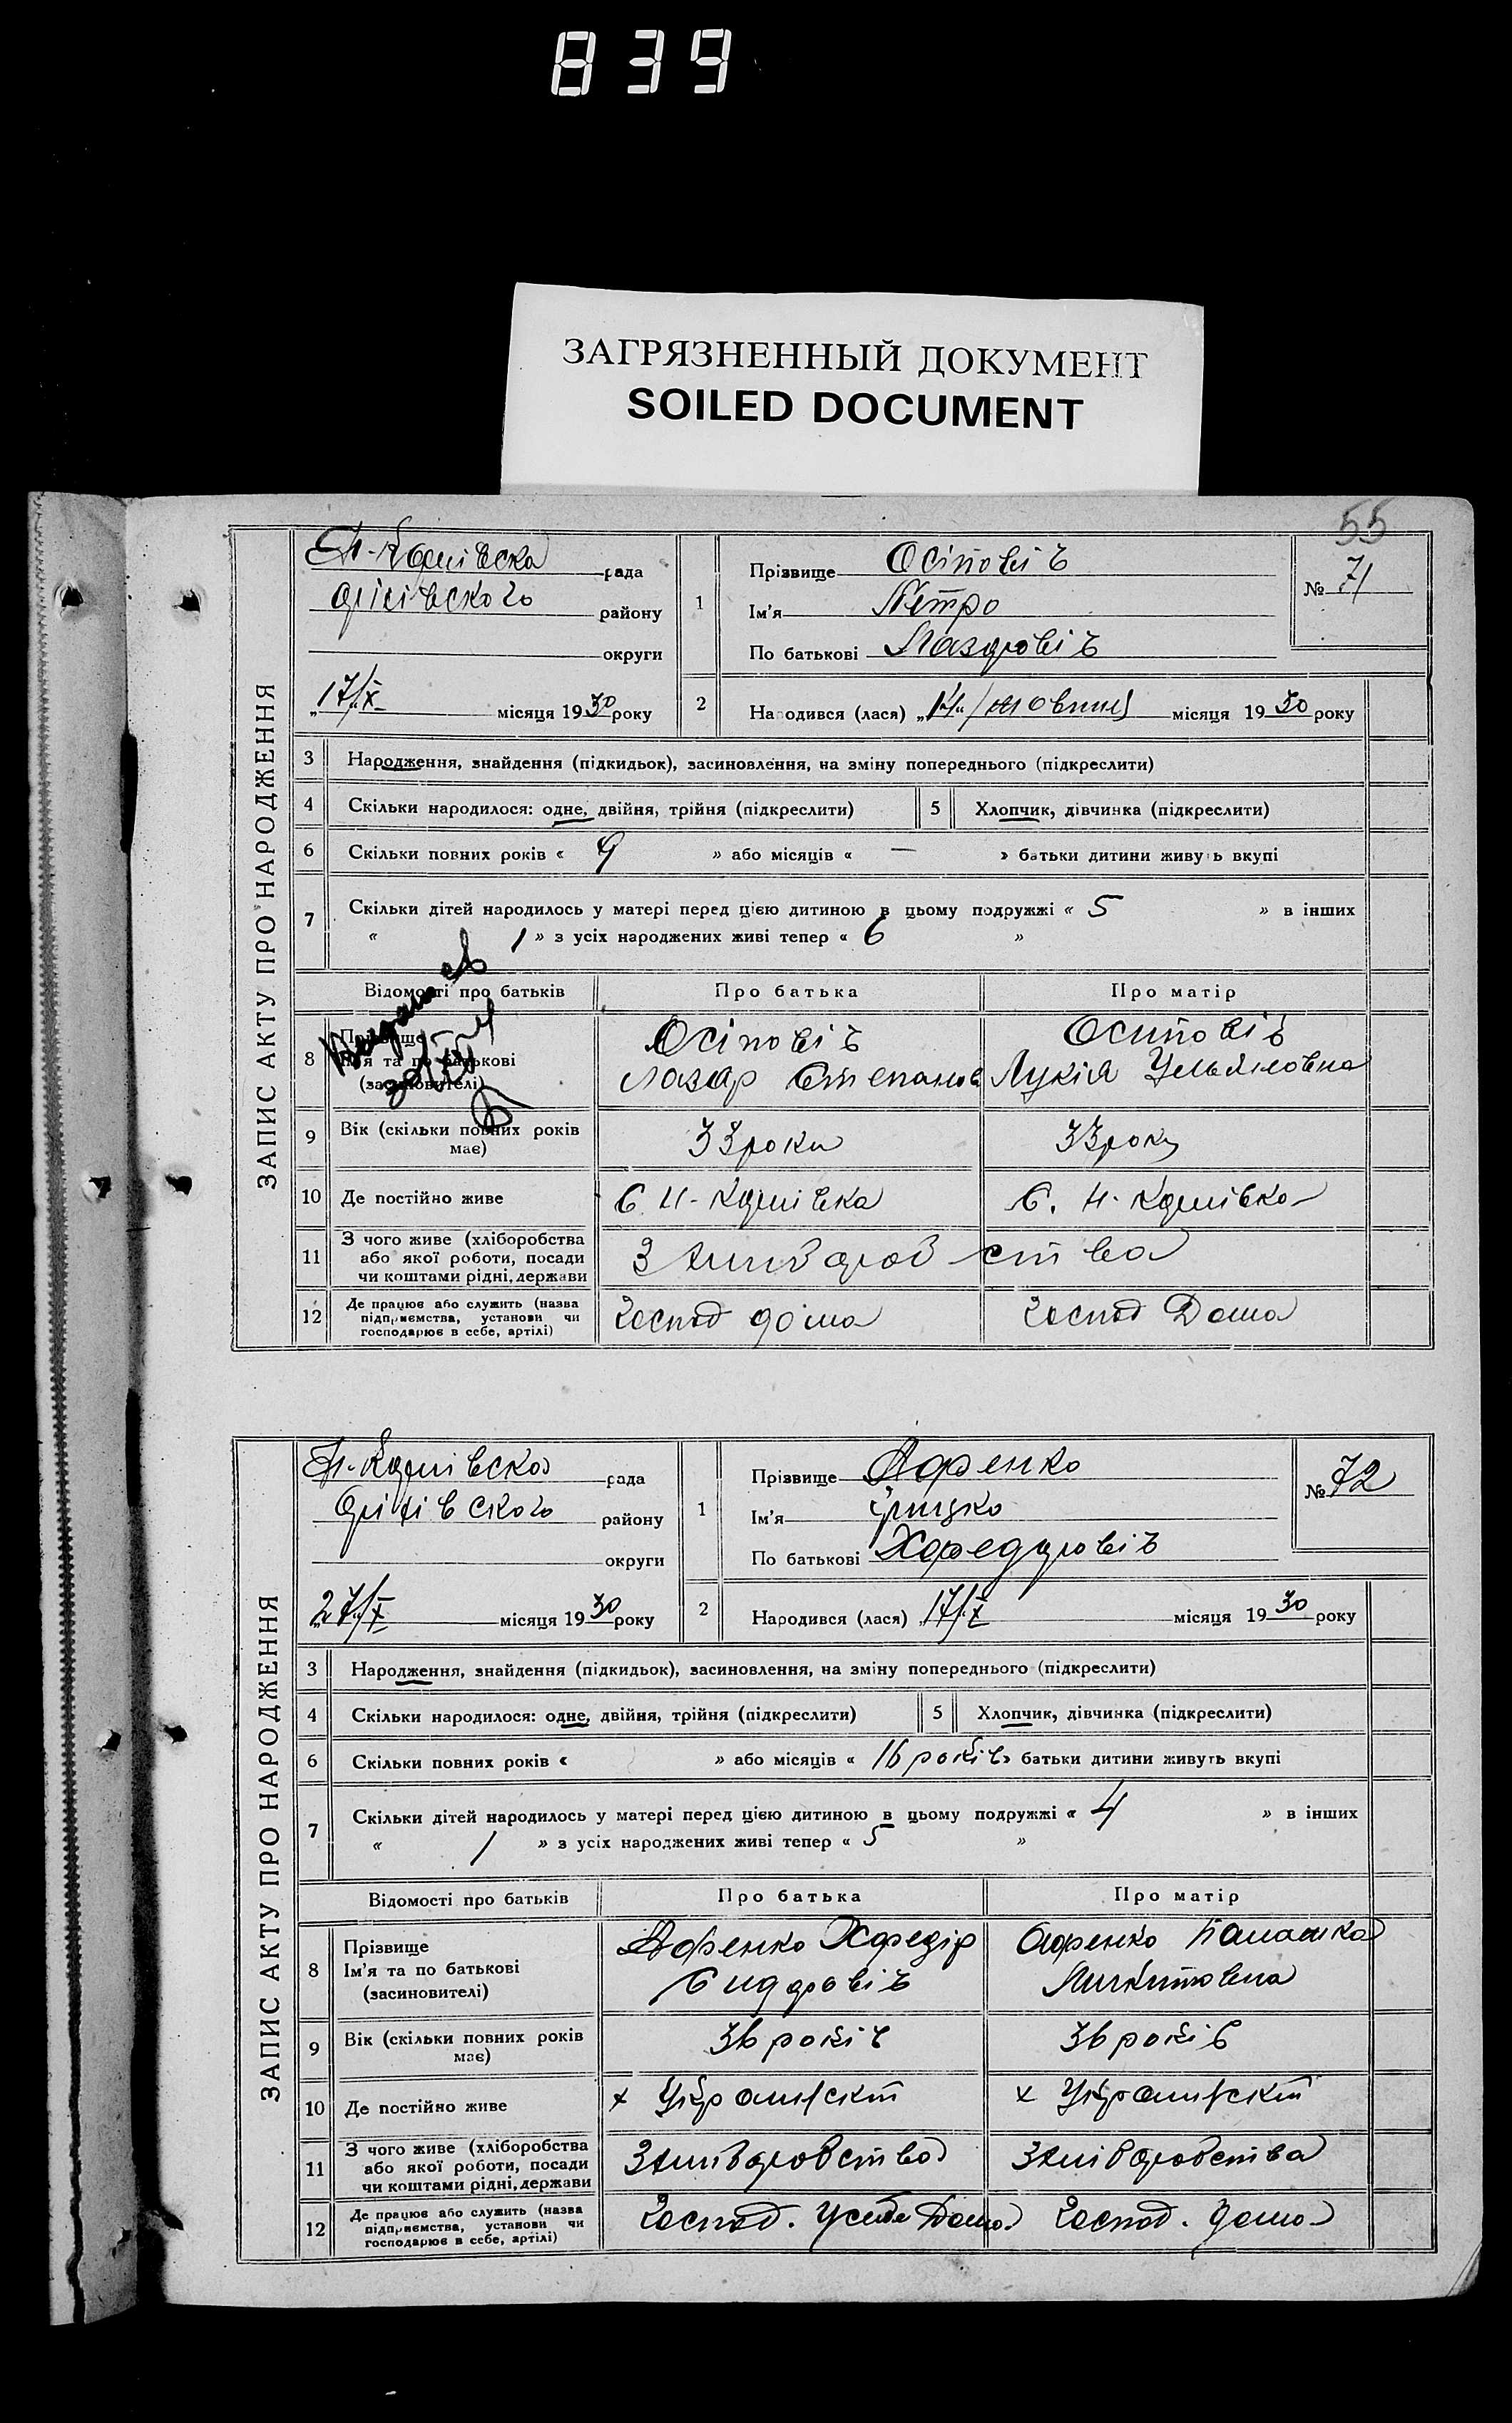 839
ЗАГРЯЗНЕННЫЙ ДОКУМЕНТ
SOILED DOCUMENT
55
ЗАПИС АКТУ ПРО НАРОДЖЕННЯ
рада
району
округи
„17/„X місяця 1930 року
1
Прізвище Осіповіч
Ім'я Петро
По батькові Лазаровіч
№ 71
2
Народився (лася) „14„ жовтня місяця 1930 року
3 Народження, знайдення (підкидьок), засиновлення, на зміну попереднього (підкреслити)
4 Скільки народилося: одне, двійня, трійня (підкреслити)
5 Хлопчик, дівчинка (підкреслити)
6 Скільки повних років « 9 » або місяців « — » батьки дитини живуть вкупі
7 Скільки дітей народилось у матері перед цією дитиною в цьому подружжі « 5 » в інших
« 1 » з усіх народжених живі тепер « 6 »
Відомості про батьків Про батька Про матір
8 Прізвище
Ім'я та по батькові
(засиновителі)
Осіповіч
Лазар Степанов
Осиповіч
Лукія Ульяновна
9 Вік (скільки повних років має) 33 роки 33 роки
10 Де постійно живе
11 З чого живе (хліборобства
або якої роботи, посади
чи коштами рідні, держави
12 Де працює або служить (назва
підприємства, установи чи
господарює в себе, артілі)
Господ дома Господ Дома
ЗАПИС АКТУ ПРО НАРОДЖЕННЯ
рада
району
округи
„27/„X місяця 1930 року
1
Прізвище Афенко
Ім'я Грицко
По батькові Хфедоровіч
№ 72
2
Народився (лася) „17/„X місяця 1930 року
3 Народження, знайдення (підкидьок), засиновлення, на зміну попереднього (підкреслити)
4 Скільки народилося: одне, двійня, трійня (підкреслити)
5 Хлопчик, дівчинка (підкреслити)
6 Скільки повних років « » або місяців « 16 років » батьки дитини живуть вкупі
7 Скільки дітей народилось у матері перед цією дитиною в цьому подружжі « 4 » в інших
« 1 » з усіх народжених живі тепер « 5 »
Відомості про батьків Про батька Про матір
8 Прізвище
Ім'я та по батькові
(засиновителі)
Афенко Хфедір
Сидоровіч
Афенко Палашка
Микитовна
9 Вік (скільки повних років має) 36 років 36 років
10 Де постійно живе
11 З чого живе (хліборобства
або якої роботи, посади
чи коштами рідні, держави
12 Де працює або служить (назва
підприємства, установи чи
господарює в себе, артілі)
Господ. Усебе Дома Господ. дома